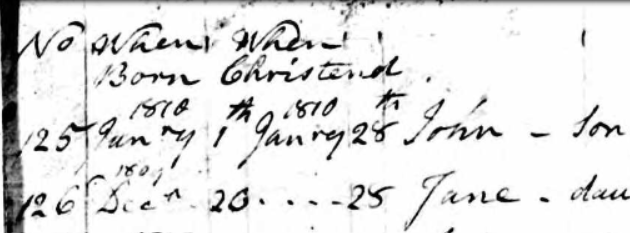 No When When
Born Christend.
1810 1810
125 Janry 1th Janry 28th John - Son
1809
126 Decr 20 .... 28 Jane - dau